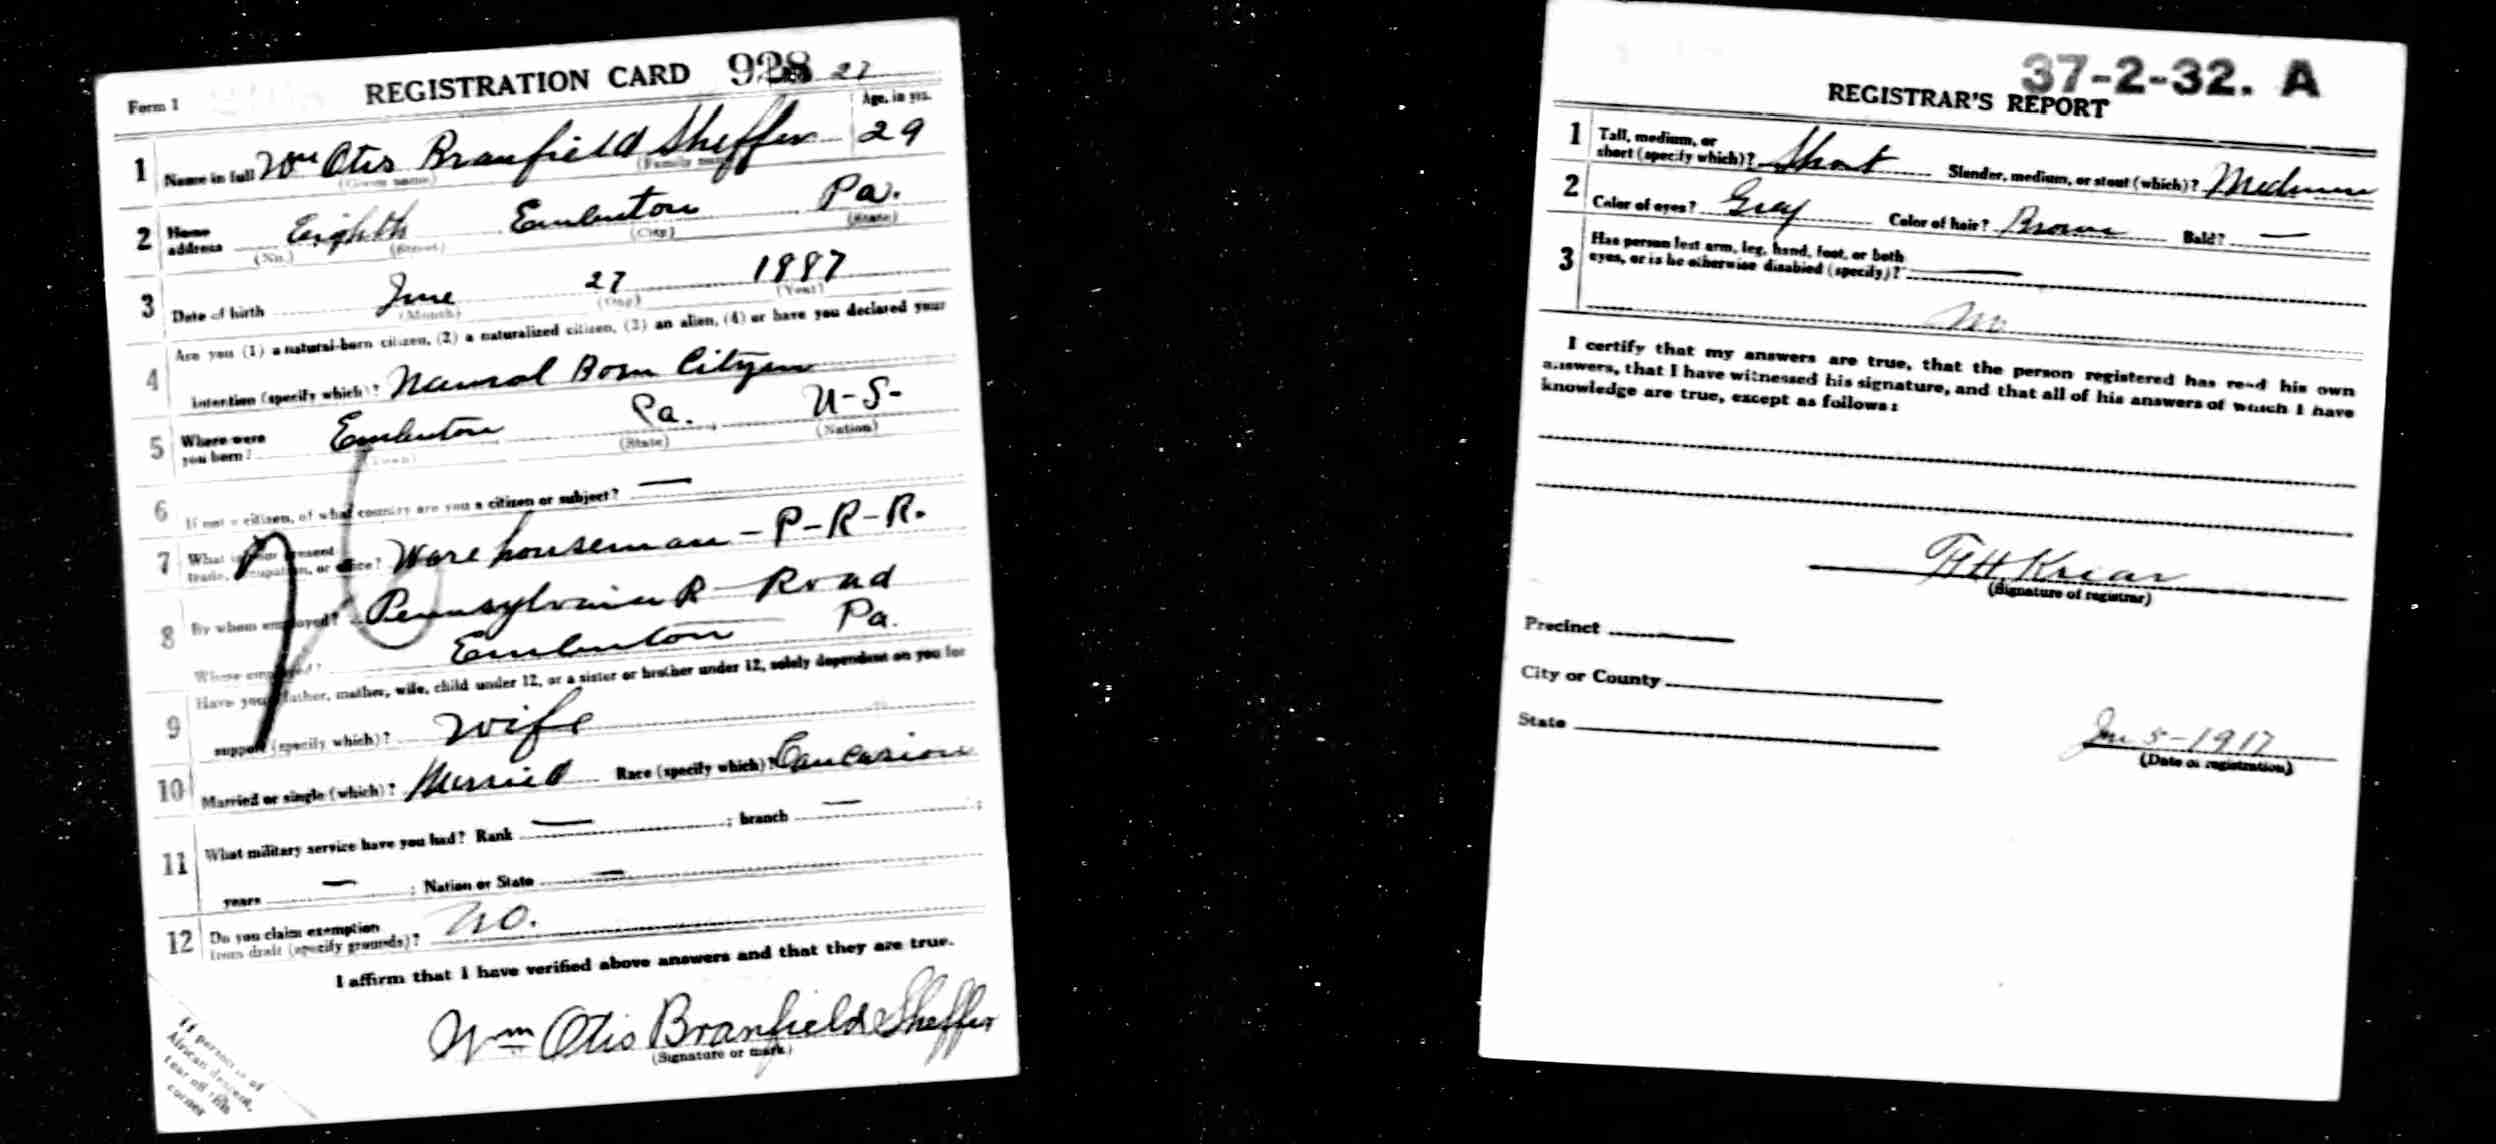 Form 1 REGISTRATION CARD 928 27
Age, in yrs.
1 Name in full Wm Otis Branfield Sheffer 29
(Given name) (Family name)
2 Home address Eighth Emlenton Pa.
(No.) (Street) (City) (State)
3 Date of birth June 27 1887
(Month) (Day) (Year)
4 Are you (1) a natural-born citizen, (2) a naturalized citizen, (3) an alien, (4) or have you declared your
intention (specify which)? Natural Born Citizen
5 Where were you born? Emlenton Pa. U-S-
(Town) (State) (Nation)
6 If not a citizen, of what country are you a citizen or subject? —
7 What is your present trade, occupation, or office? Warehouseman - P-R-R.
8 By whom employed? Pennsylvania R-Road
Where employed? Emlenton Pa.
9 Have you a father, mother, wife, child under 12, or a sister or brother under 12, solely dependent on you for
support (specify which)? Wife
10 Married or single (which)? Married Race (specify which)? Caucasion
11 What military service have you had? Rank — ; branch — ;
years — ; Nation or State —
12 Do you claim exemption from draft (specify grounds)? No.
I affirm that I have verified above answers and that they are true.
Wm Otis Branfield Sheffer
(Signature or mark)
If person is of
African descent,
tear off this
corner
37-2-32. A
REGISTRAR'S REPORT
1 Tall, medium, or short (specify which)? Short Slender, medium, or stout (which)? Medium
2 Color of eyes? Gray Color of hair? Brown Bald? —
3 Has person lost arm, leg, hand, foot, or both
eyes, or is he otherwise disabled (specify)? —
No
I certify that my answers are true, that the person registered has read his own
answers, that I have witnessed his signature, and that all of his answers of which I have
knowledge are true, except as follows:
(Signature of registrar)
Precinct
City or County
State
5-1917
(Date of registration)